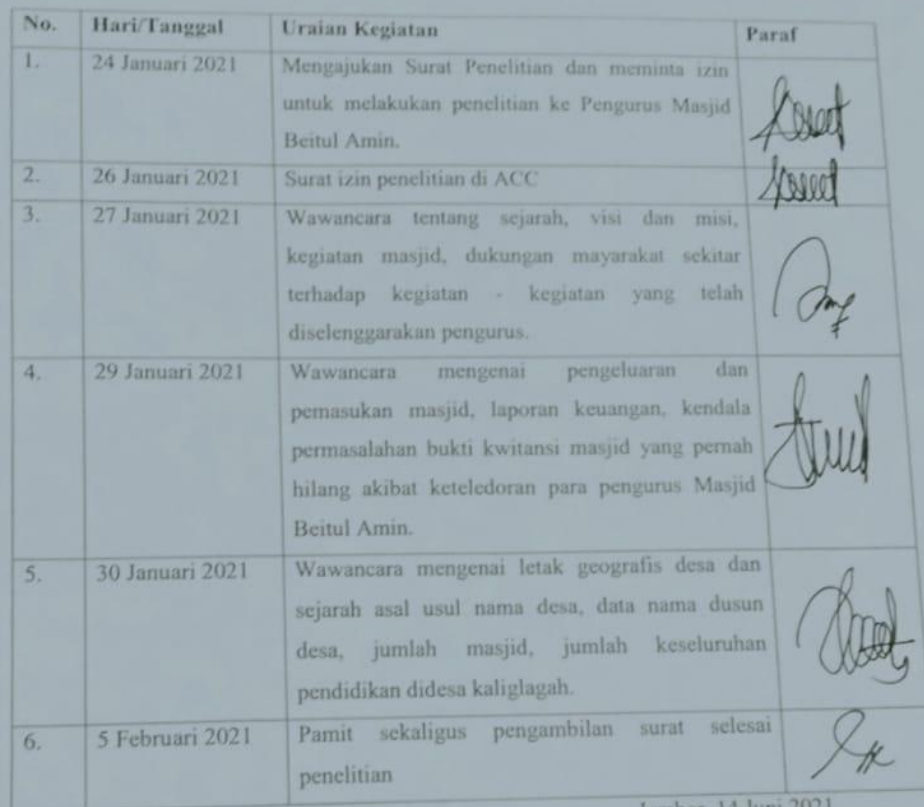 No. Hari/Tanggal Uraian Kegiatan Paraf
1. 24 Januari 2021 Mengajukan Surat Penelitian dan meminta izin
untuk melakukan penelitian ke Pengurus Masjid
Beitul Amin.
2. 26 Januari 2021 Surat izin penelitian di ACC
3. 27 Januari 2021 Wawancara tentang sejarah, visi dan misi,
kegiatan masjid, dukungan mayarakat sekitar
terhadap kegiatan - kegiatan yang telah
diselenggarakan pengurus.
4. 29 Januari 2021 Wawancara mengenai pengeluaran dan
pemasukan masjid, laporan keuangan, kendala
permasalahan bukti kwitansi masjid yang pernah
hilang akibat keteledoran para pengurus Masjid
Beitul Amin.
5. 30 Januari 2021 Wawancara mengenai letak geografis desa dan
sejarah asal usul nama desa, data nama dusun
desa, jumlah masjid, jumlah keseluruhan
pendidikan didesa kaliglagah.
6. 5 Februari 2021 Pamit sekaligus pengambilan surat selesai
penelitian
14 Juni 2021